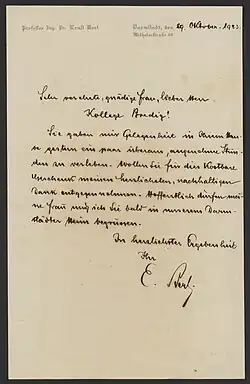 Professor Ing. Dr. Ernst Berl
Darmstadt, den 29. Oktober 1923.
Wilhelmstraße
Sehr verehrte, gnädige Frau, lieber Herr
Kollege Bredig!
Sie gaben mir Gelegenheit in Ihrem Hau-
se gestern ein paar überaus angenehme Stun-
den zu verleben. Wollen Sie für dies kostbare
Geschenk meinen herzlichsten, nachhaltigen
Dank entgegennehmen. Hoffentlich dürfen mei-
ne Frau und ich Sie bald in unserem Darm-
städter Heim begrüssen.
In herzlichster Ergebenheit
Ihr
E. Berl.